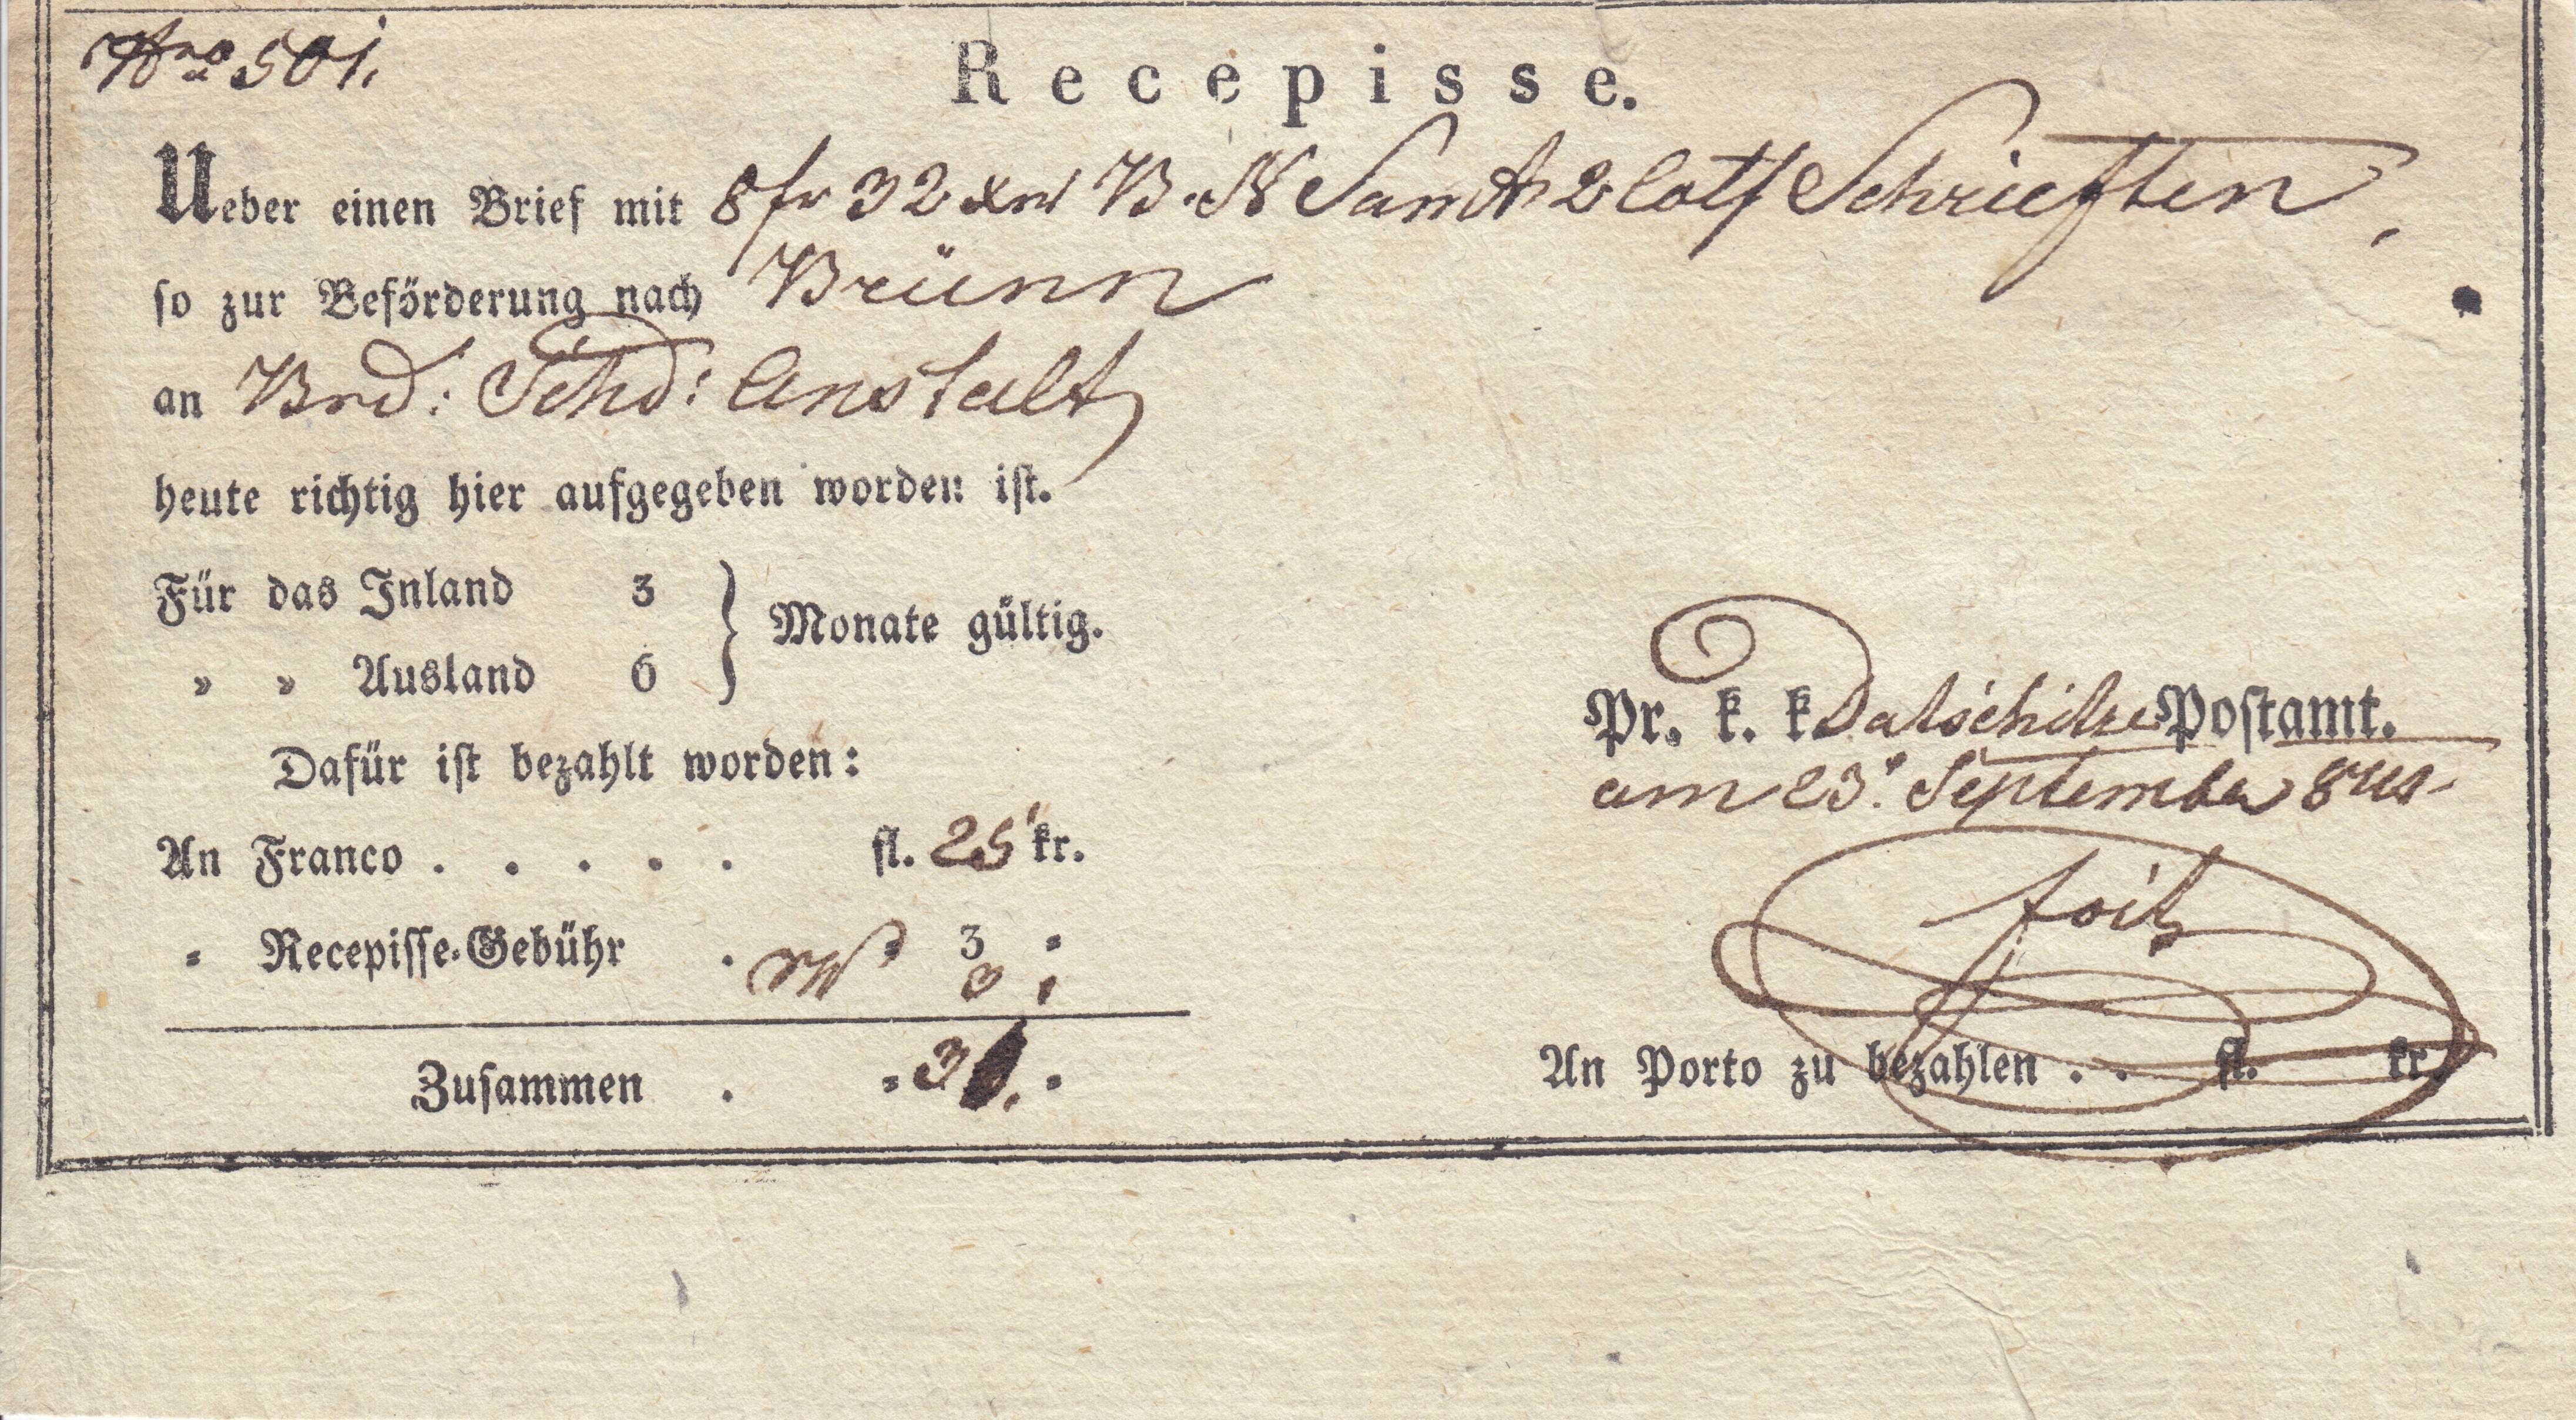 Nro 501.
Recepisse.
Ueber einen Brief mit 8 fr 32 xr B. N Samt 2 loth Schrieften
so zur Beförderung nach Brünn
an Brd: Schd: Anstalt
heute richtig hier aufgegeben worden ist.
Für das Inland 3
Monate gültig.
» » Ausland 6
Pr. k. k Datschitze Postamt.
am 23. September
Dafür ist bezahlt worden:
An Franco . . . . . fl. 25 kr.
" Recepisse-Gebühr . " 3 "
3
Zusammen . "
An Porto zu bezahlen . . fl. kr.